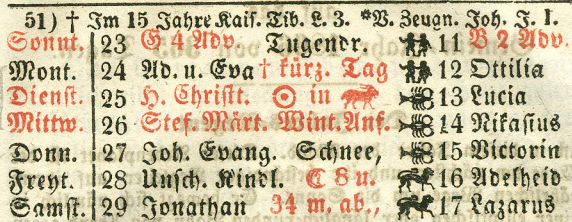 51) † Im 15 Jahre Kais. Tib. L. 3. *V. Zeugn. Joh. J. 1.
Sonnt. 23 G 4 Adv. Tugendr. 11 B 2 Adv.
Mont. 24 Ad. u. Eva † kürz. Tag 12 Ottilia
Dienst. 25 H. Christt. ☉ in 13 Lucia
Mittw. 26 Stef. Märt. Wint. Anf. 14 Nikasius
Donn. 27 Joh. Evang. Schnee, 15 Victorin
Freyt. 28 Unsch. Kindl. ☾ 8 u. 16 Adelheid
Samst. 29 Jonathan 34 m. ab., 17 Lazarus